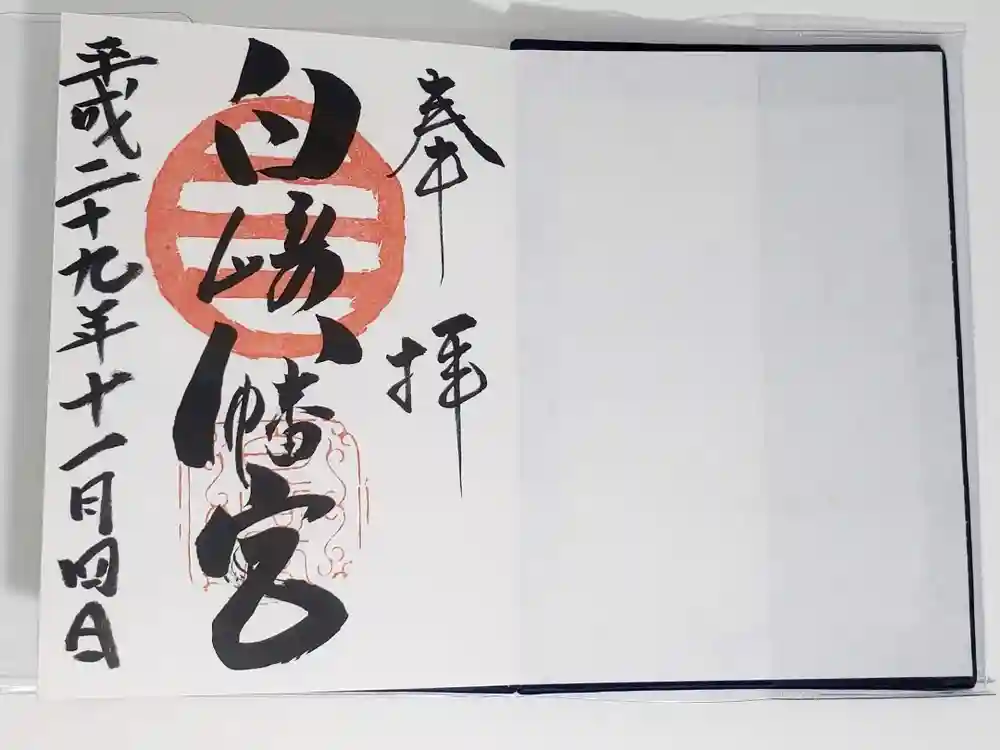 奉拝
白﨑八幡宮
平成二十九年十一月四日